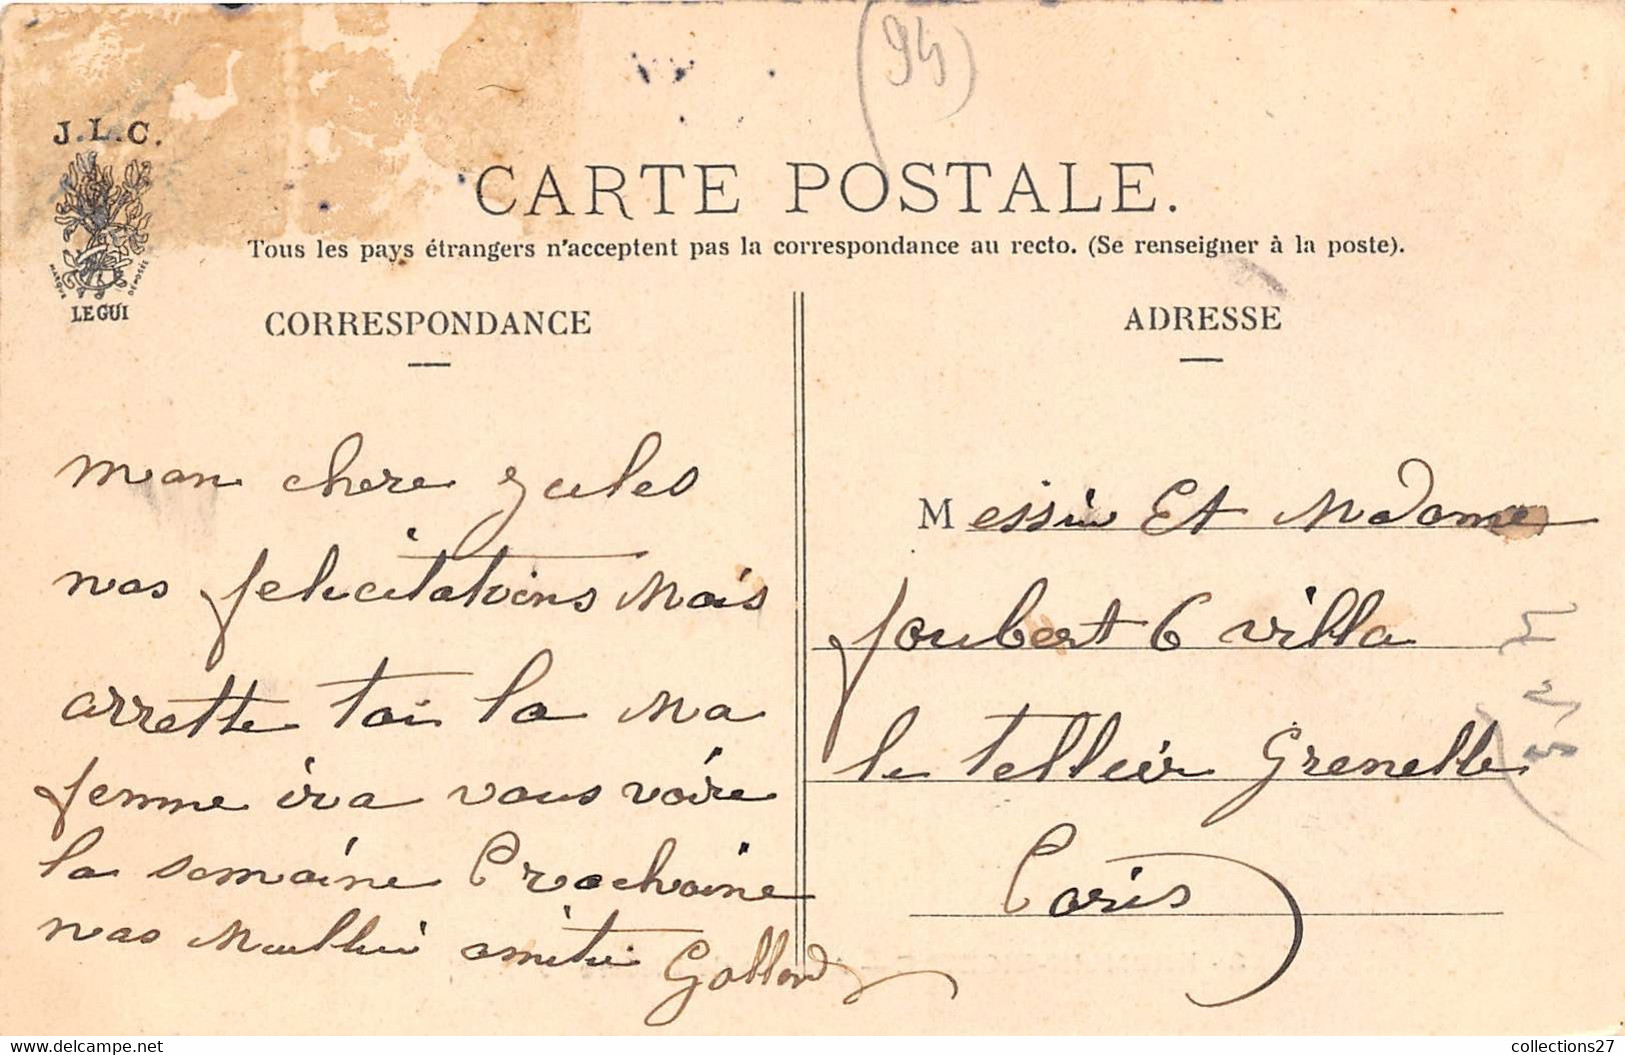 (94)
J.L.C.
MARQUE DÉPOSÉE
LE GUI
CARTE POSTALE.
Tous les pays étrangers n'acceptent pas la correspondance au recto. (Se renseigner à la poste).
CORRESPONDANCE
mon chere jules
nos felicitations Mais
arrette toi la Ma
femme ira vous voire
la semaine Prochaine
nos amitie Gallond
ADRESSE
Messiu Et Madame
Joubert 6 villa
le tellier Grenelle
Paris
collections27